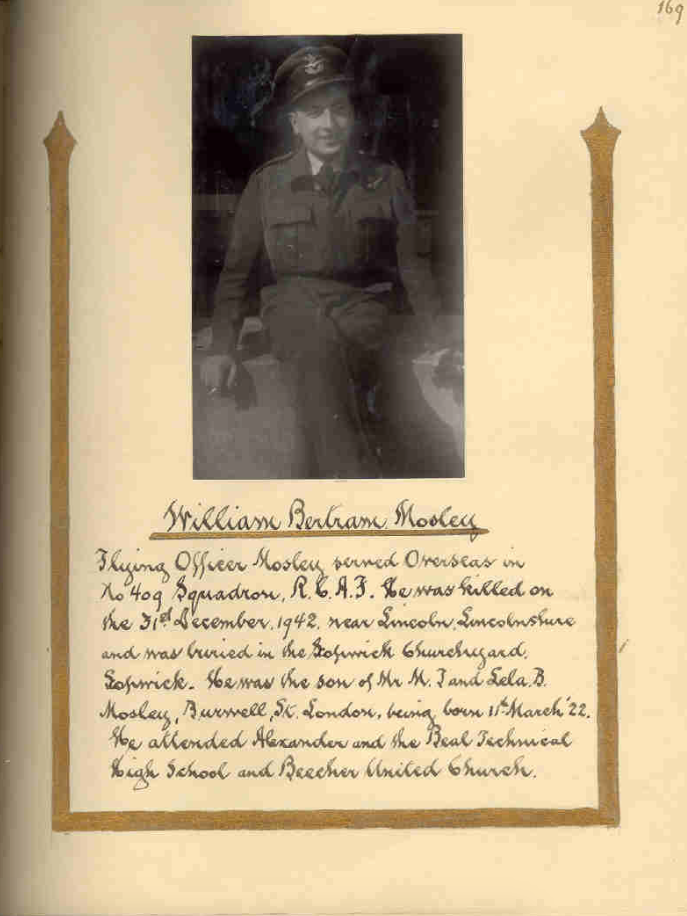 169
William Bertram Mosley
Flying Officer Mosley served Overseas in
No 409 Squadron, R.C.A.F. He was killed on
the 31st December, 1942, near Lincoln, Lincolnshire
and was buried in the Scopwick Churchyard,
Scopwick. He was the son of Mr M. J and Lela. B.
Mosley, Burwell, St. London, being born 11th March '22.
He attended Alexander and the Beal Technical
High School and Beecher United Church.